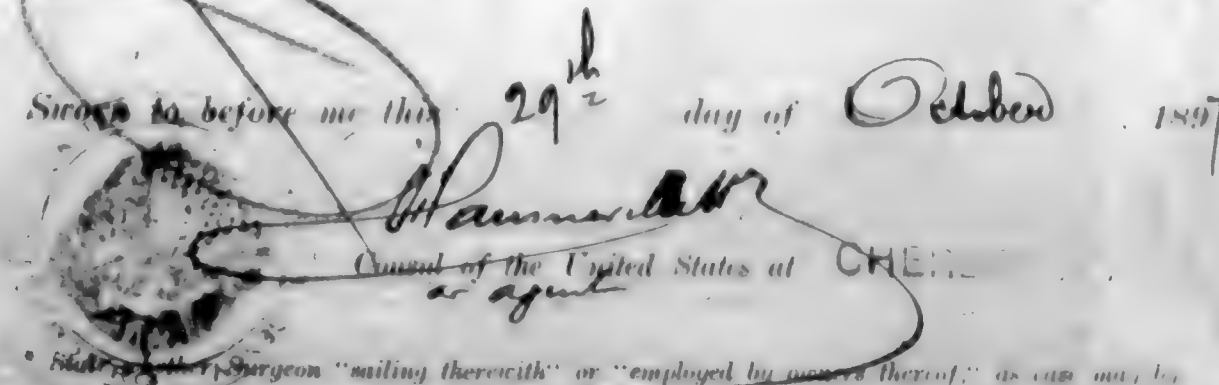 Sworn to before me this 29th day of October 1897
Consul of the United States at
or agent
Surgeon "sailing therewith" or "employed by owners thereof," as case may be